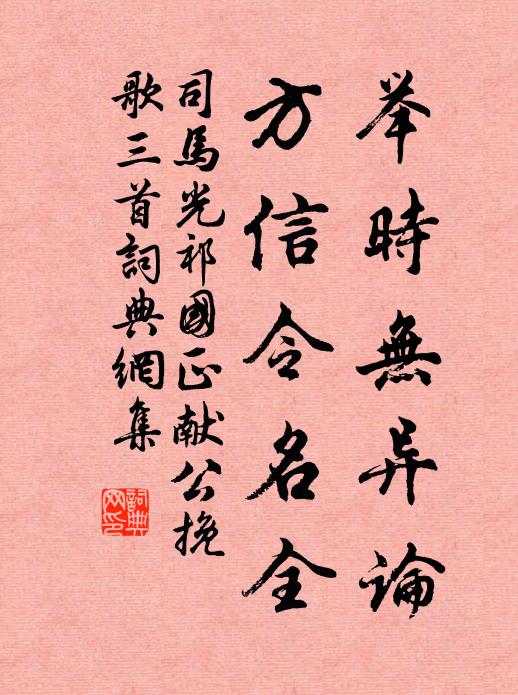 举時無异論
方信令名全
司馬光祁國正献公挽
歌三首詞典網集
詞典网印